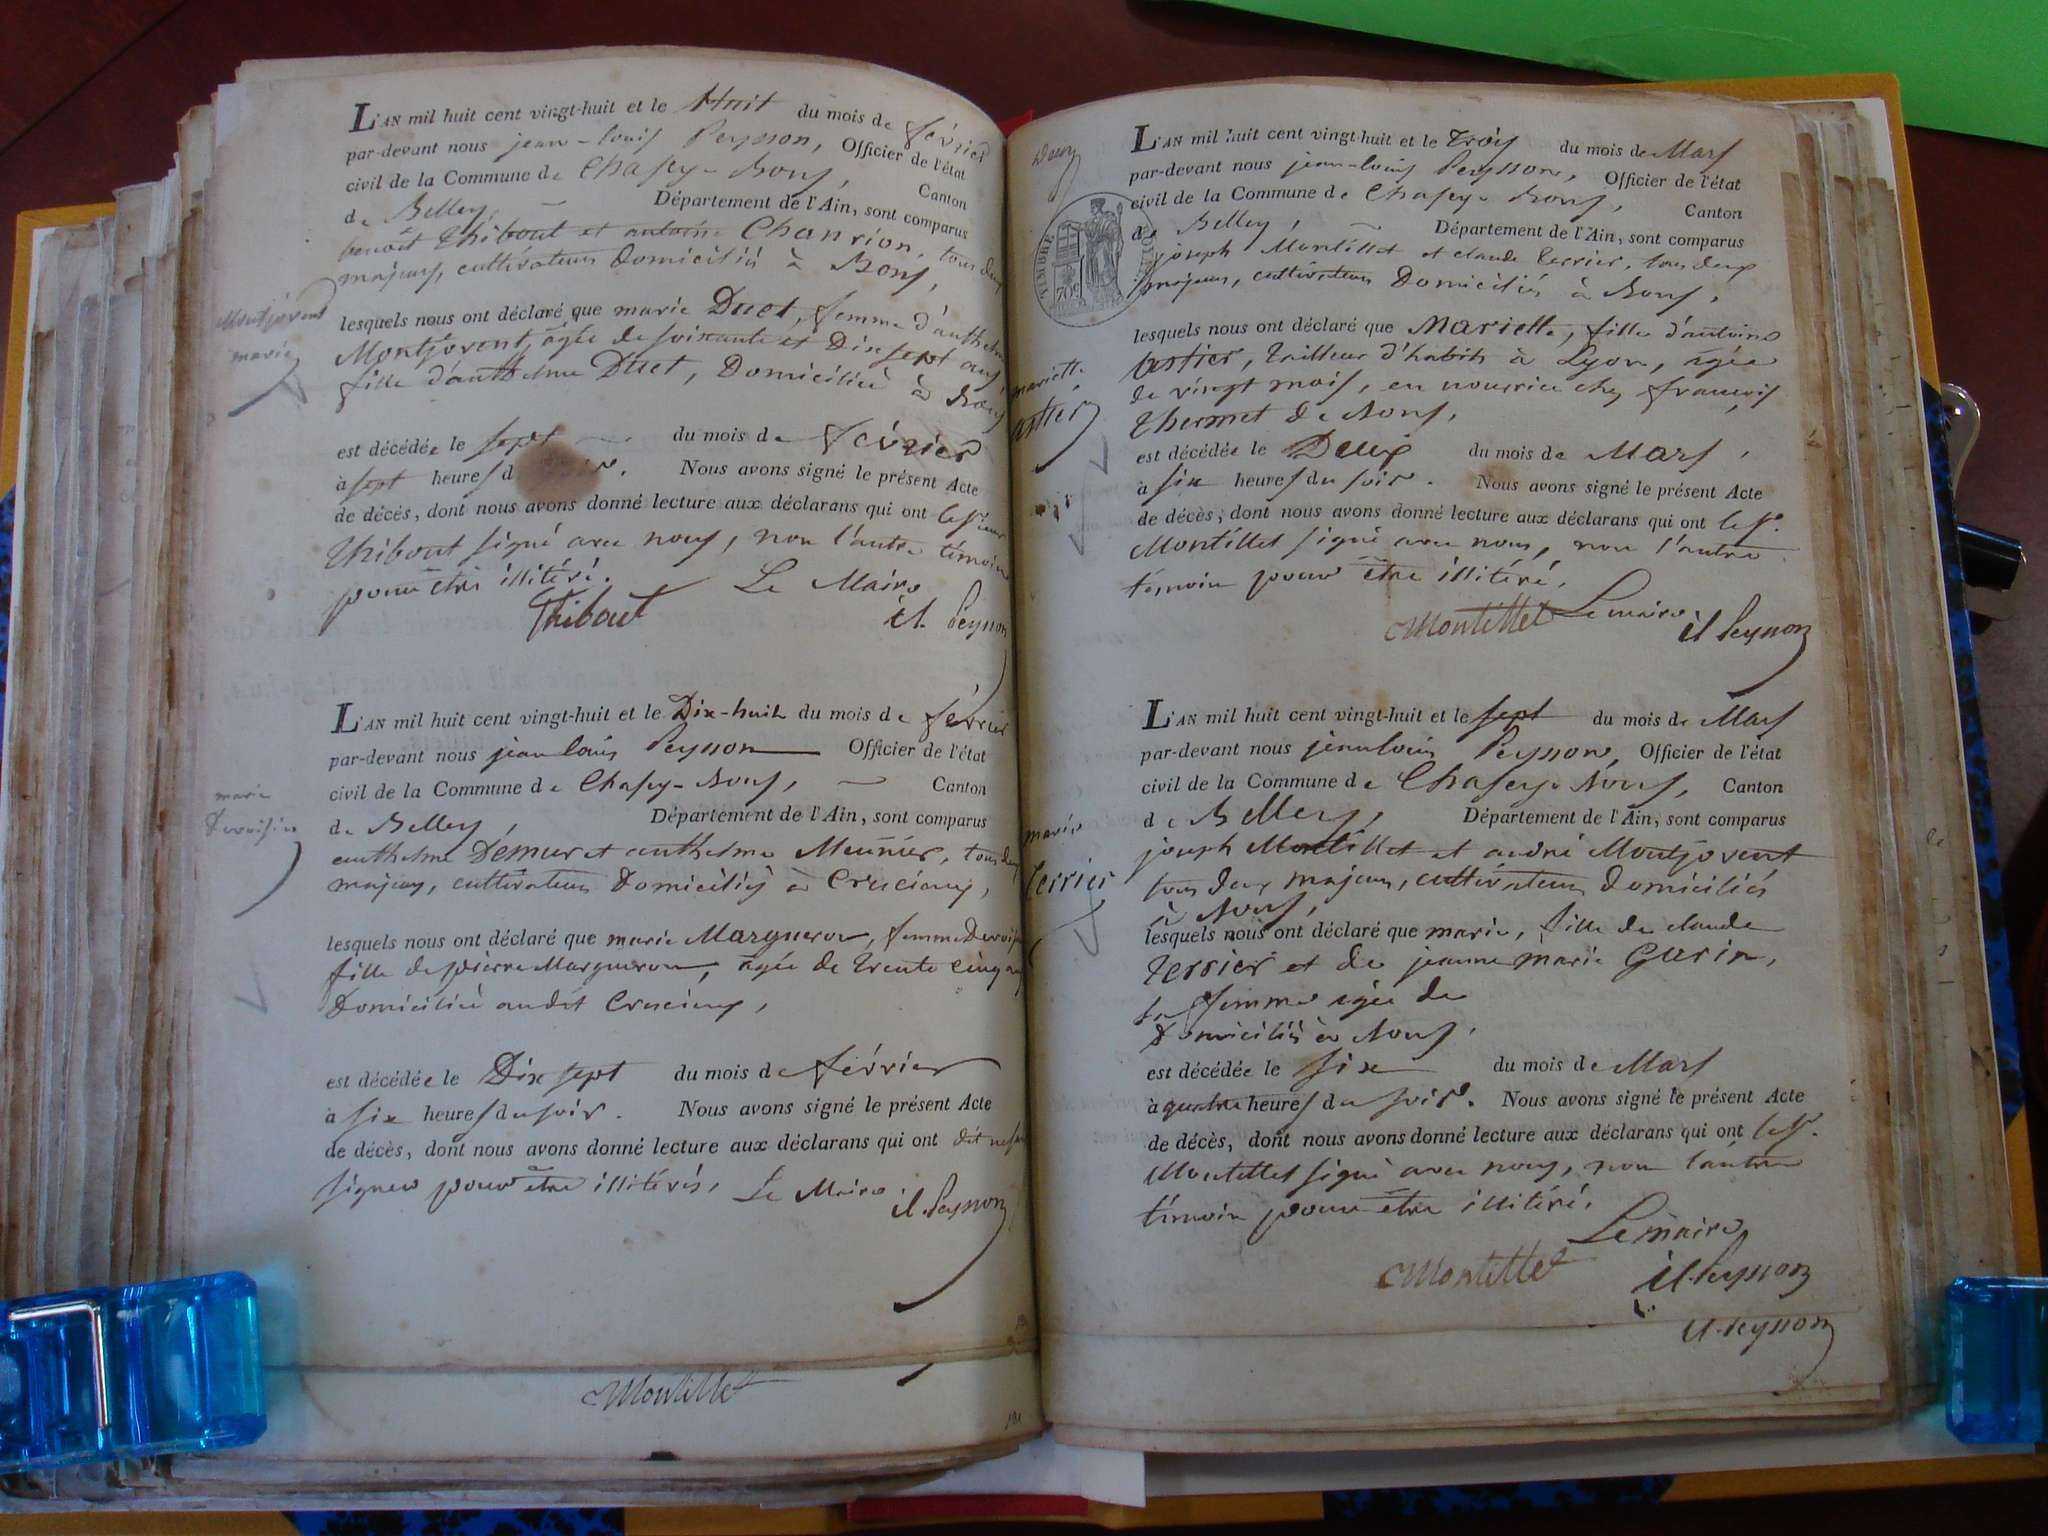 L'AN mil huit cent vingt-huit et le Huit du mois de février
par-devant nous jean-louis Peysson, Officier de l'état
civil de la Commune de Chasey-Bons, Canton
de Belley, Département de l'Ain, sont comparus
benoit Thibout et antoine Chanrion, tous deux
majeurs, cultivateurs Domiciliés à Bons,
Montjovent
marie
lesquels nous ont déclaré que marie Duet, femme d'anthelme
Montjovent, agée de soixante et Dix sept ans,
fille d'anthelme Duet, Domiciliée à Bons
est décédée le sept du mois de février
à sept heures d Nous avons signé le présent Acte
de décès, dont nous avons donné lecture aux déclarans qui ont le sieur
Thibout signé avec nous, non l'autre témoin
pour être illitéré.
Le Maire
Thibout
Peysson
L'AN mil huit cent vingt-huit et le Dix-huit du mois de février
par-devant nous jean louis Peysson Officier de l'état
civil de la Commune de Chasey-Bons, Canton
marie
de Belley, Département de l'Ain, sont comparus
anthelme Demur et anthelme Meunier, tous deux
majeurs, cultivateurs Domiciliés à Crucieux,
lesquels nous ont déclaré que marie Margueron, femme
fille de pierre Margueron, agée de trente cinq ans
Domiciliée audit Crucieux,
est décédée le Dix sept du mois de février
à six heures du soir. Nous avons signé le présent Acte
de décès, dont nous avons donné lecture aux déclarans qui ont dit ne savoir
signer pour être illitérés, Le Maire
Peysson
Montillet
191
L'AN mil huit cent vingt-huit et le trois du mois de Mars
par-devant nous jean-louis Peysson, Officier de l'état
civil de la Commune de Chasey-Bons, Canton
TIMBRE
de Belley, Département de l'Ain, sont comparus
joseph Montillet et claude terrier, tous deux
majeurs, cultivateurs Domiciliés à Bons,
lesquels nous ont déclaré que Mariette, fille d'antoine
astier, tailleur d'habits à Lyon, agée
mariette
astier
de vingt mois, en nourrice chez françois
thermet de Bons,
est décédée le Deux du mois de Mars,
à six heures du soir. Nous avons signé le présent Acte
de décès, dont nous avons donné lecture aux déclarans qui ont le Sr.
Montillet signé avec nous, non l'autre
témoin pour être illitéré.
Montillet Le maire
Peysson
L'AN mil huit cent vingt-huit et le sept du mois de Mars
par-devant nous jean louis Peysson, Officier de l'état
civil de la Commune de Chasey-Bons, Canton
de Belley, Département de l'Ain, sont comparus
marie
terrier
joseph Montillet et andré Montjovent
tous deux majeurs, cultivateurs domiciliés
à Bons,
lesquels nous ont déclaré que marie, fille de claude
terrier et de jeanne marie Gurin,
sa femme agée de
Domiciliés à Bons,
est décédée le six du mois de Mars
à quatre heures du soir. Nous avons signé le présent Acte
de décès, dont nous avons donné lecture aux déclarans qui ont le Sr.
Montillet signé avec nous, non l'autre
témoin pour être illitéré.
Le maire
Montillet
Peysson
Peysson